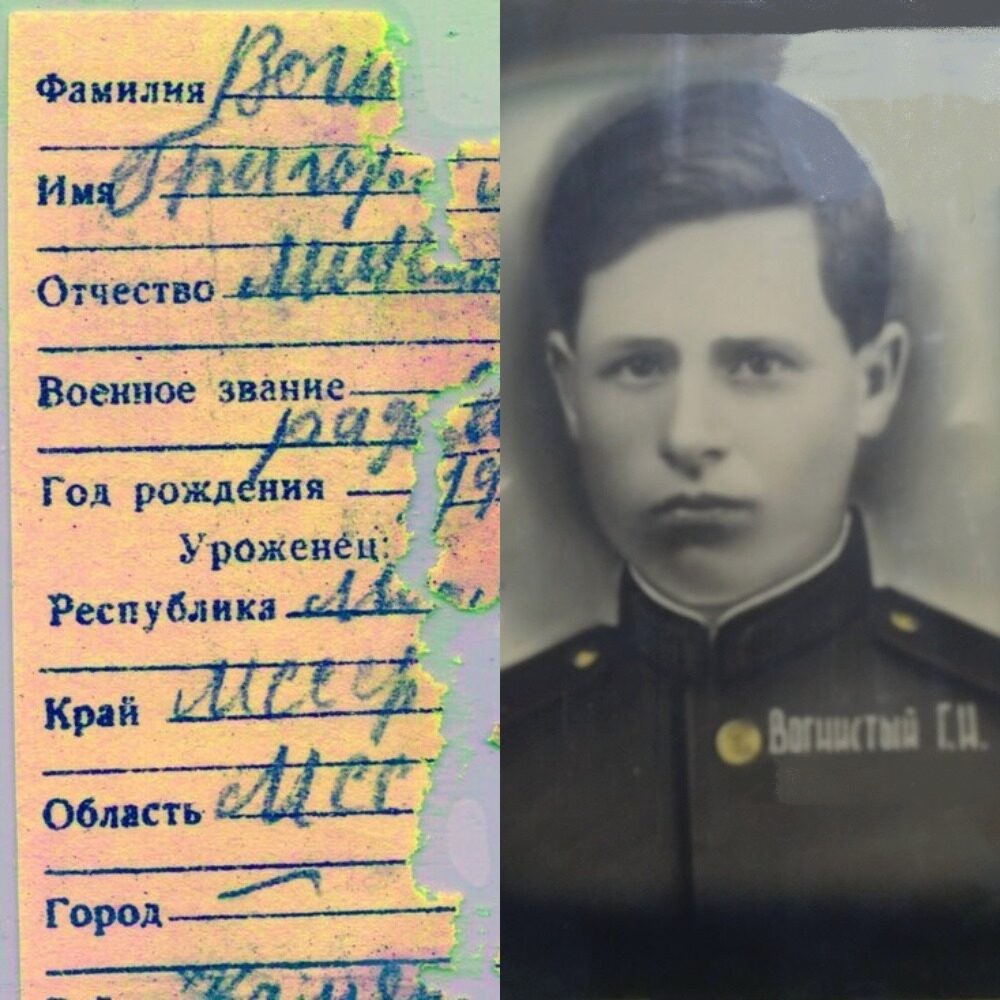 Фамилия Вогн
Имя Григори
Отчество
Военное звание
ряд
Год рождения 19
Уроженец:
Республика
Край МССР
Область МСС
Город —
Вогнистый Г.Н.